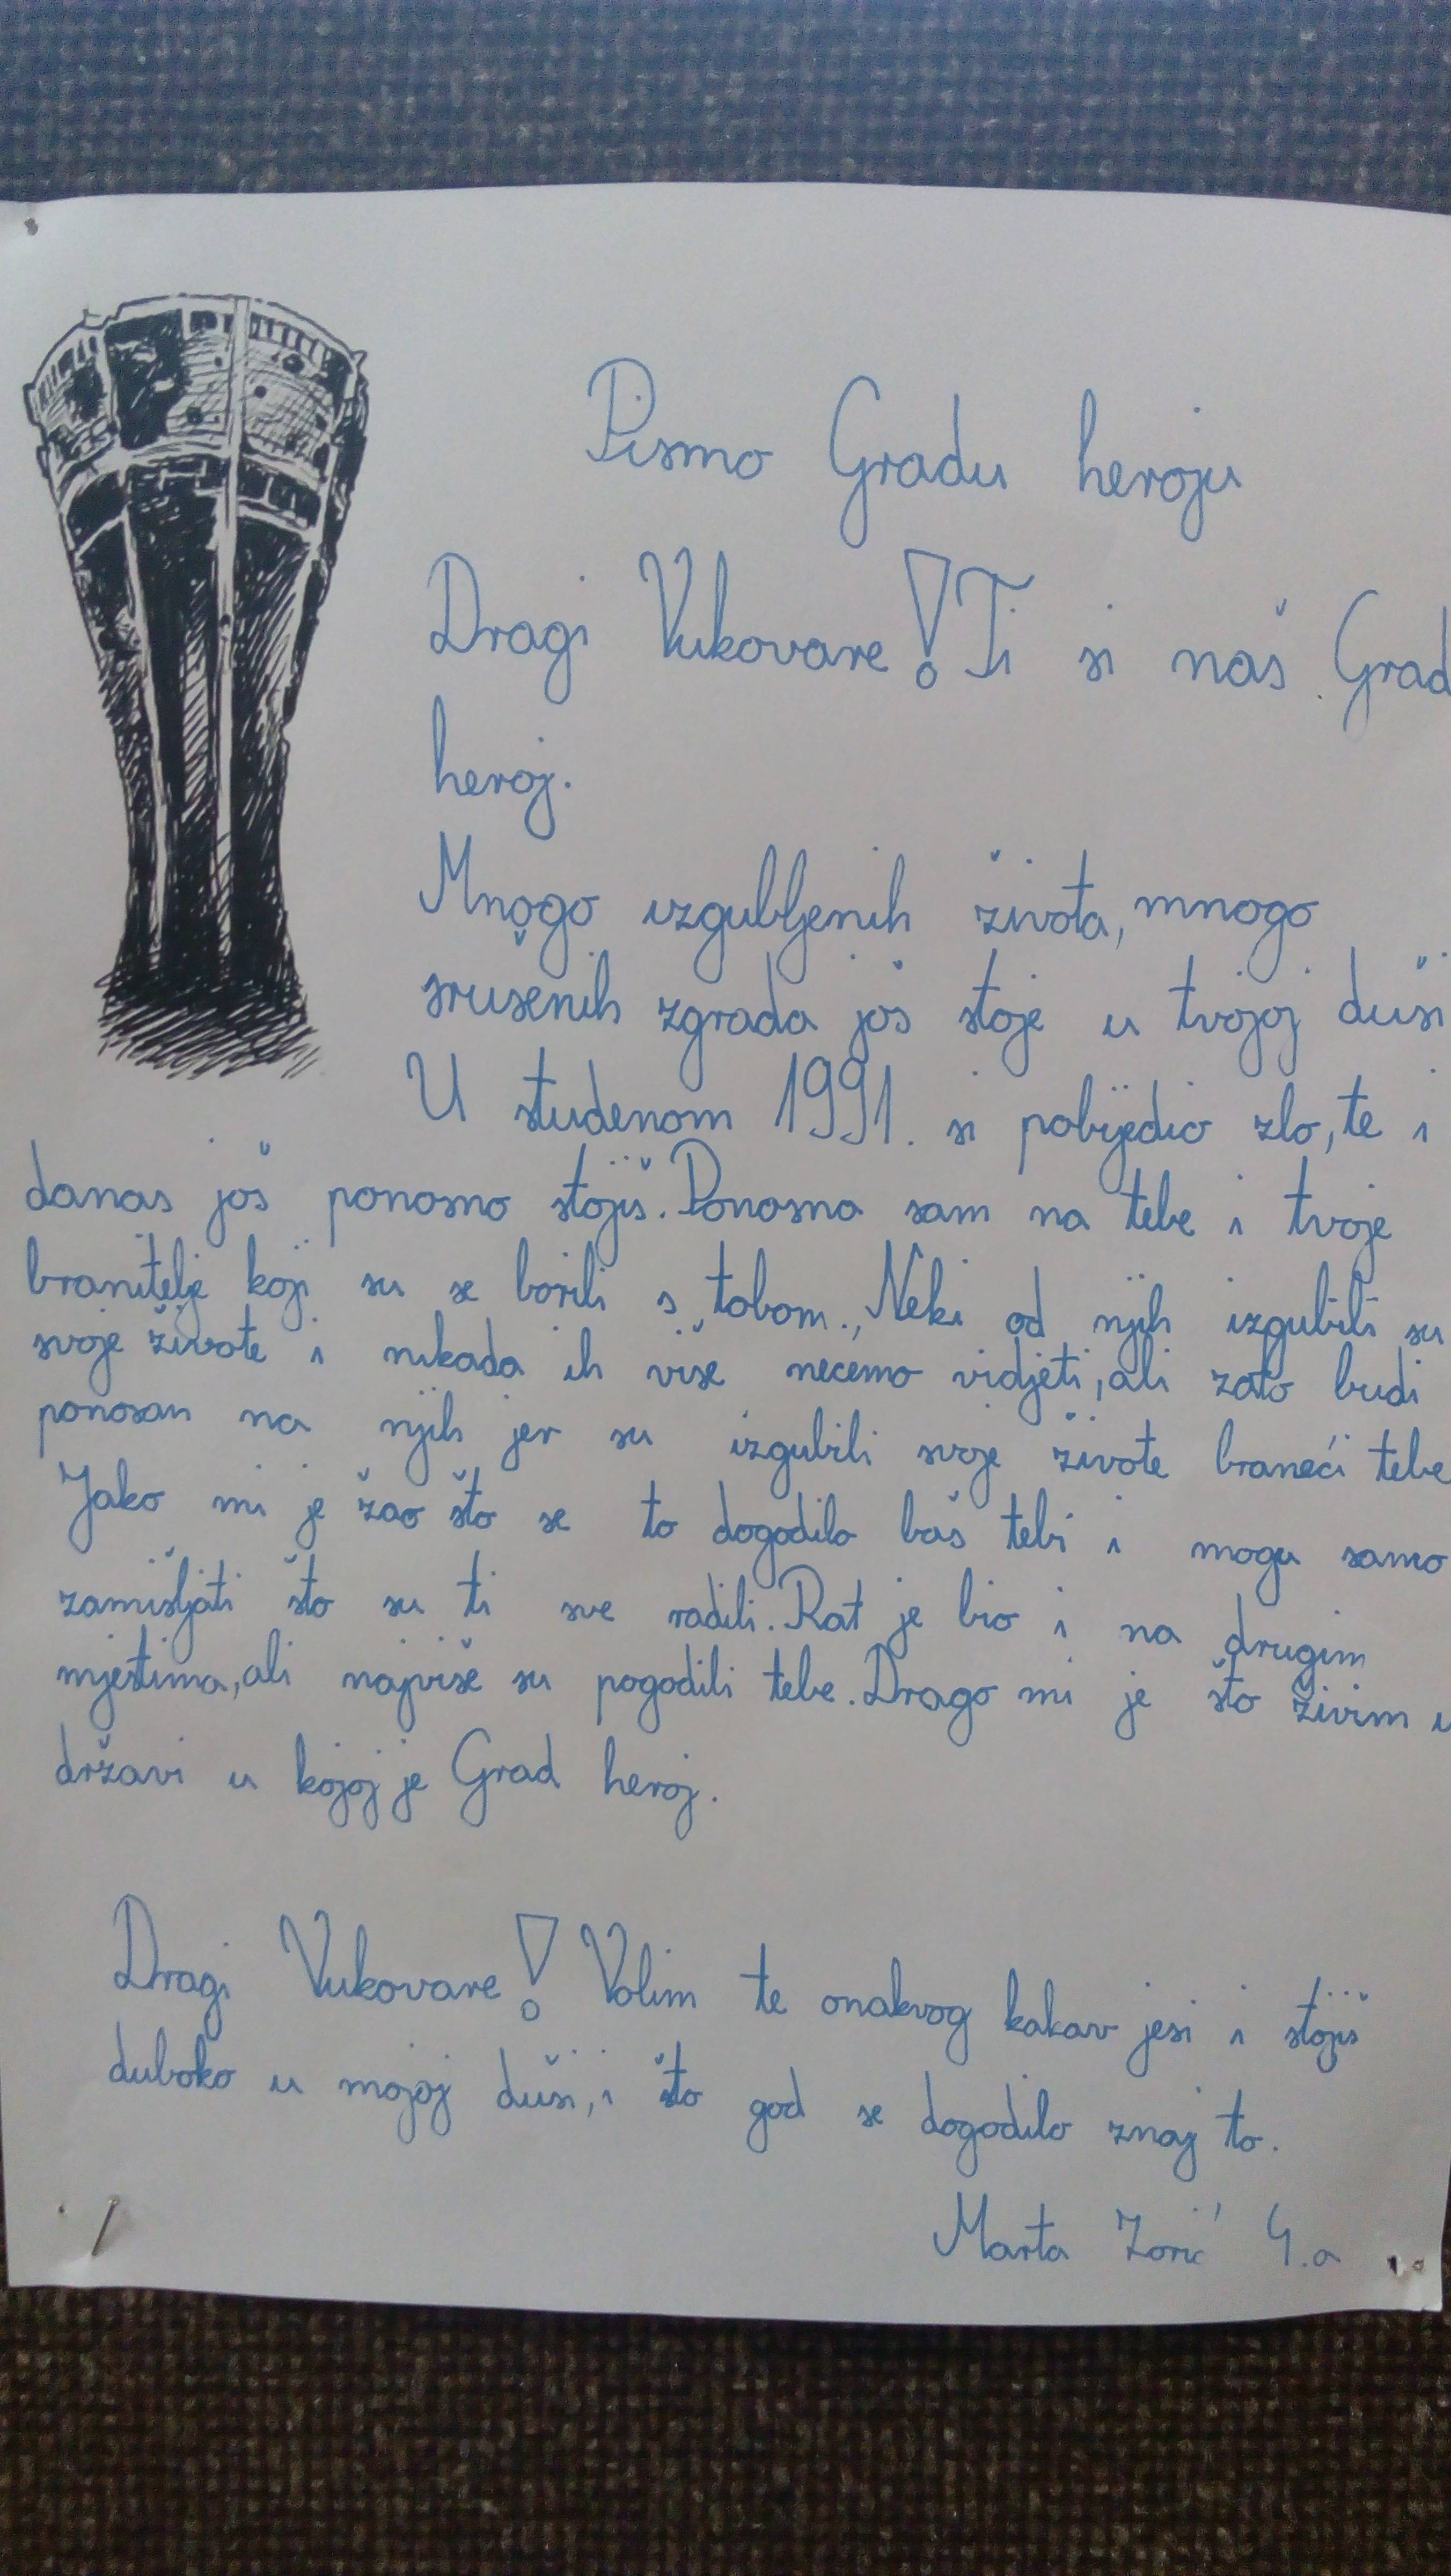 Pismo Gradu heroju
Dragi Vukovare! Ti si naš Grad
heroj.
Mnogo izgubljenih života, mnogo
srušenih zgrada još stoje u tvojoj duši
U studenom 1991. si pobijedio zlo, te i
danas još ponosno stojiš. Ponosna sam na tebe i tvoje
branitelje koji su se borili s tobom. Neki od njih izgubili su
svoje živote i nikada ih više necemo vidjeti, ali zato budi
ponosan na njih jer su izgubili svoje živote braneći tebe
Jako mi je žao što se to dogodilo baš tebi i mogu samo
zamišljati što su ti sve radili. Rat je bio i na drugim
mjestima, ali najviše su pogodili tebe. Drago mi je što živim u
državi u kojoj je Grad heroj.
Dragi Vukovare! Volim te onakvog kakav jesi i stojiš
duboko u mojoj duši, i što god se dogodilo znaj to.
Marta Zorić 4.a